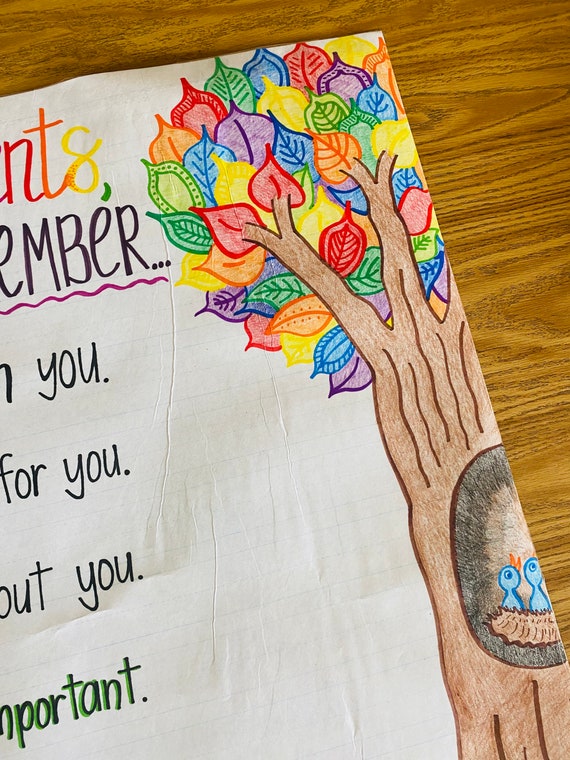 ents,
EMBER...
you.
for you.
out you.
important.